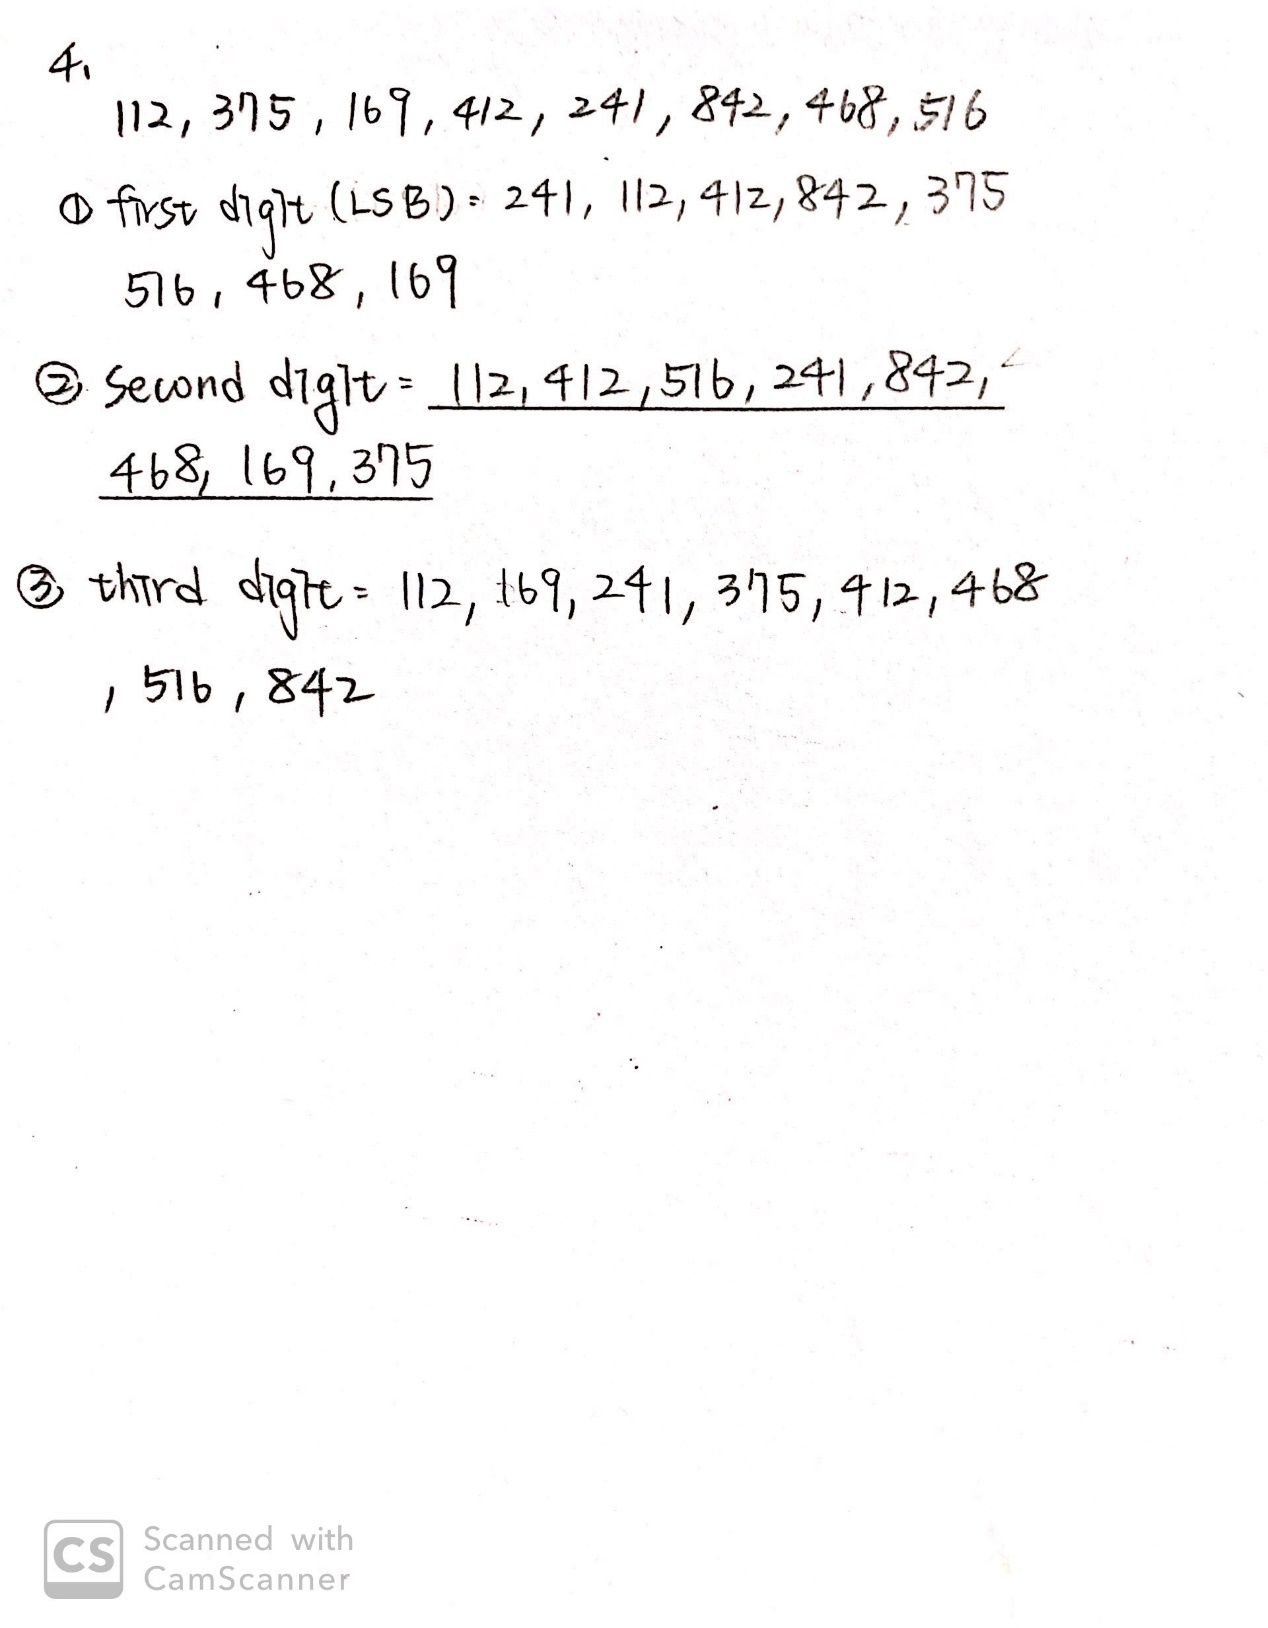 4.
112, 375, 169, 412, 241, 842, 468, 516
① first digit (LSB) = 241, 112, 412, 842, 375
516, 468, 169
② Second digit = 112, 412, 516, 241, 842,
468, 169, 375
③ third digit = 112, 169, 241, 375, 412, 468
, 516, 842
CS Scanned with
CamScanner